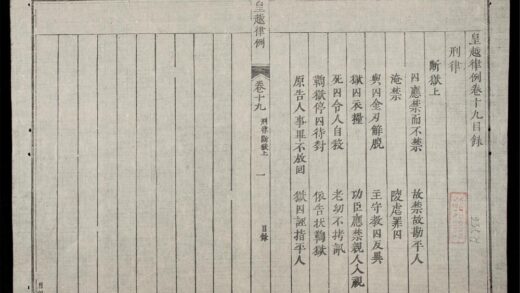 皇越律例卷十九目錄
刑律
斷獄上
囚應禁而不禁 故禁故勘平人
淹禁 陵虐罪囚
與囚金刃解脫 主守教囚反異
獄囚衣糧 功臣應禁親人入視
死囚令人自殺 老幼不拷訊
鞫獄停囚待對 依告狀鞫獄
原告人事畢不放回 獄囚誣指平人
皇越律例 卷十九 刑律斷獄上 一 目錄